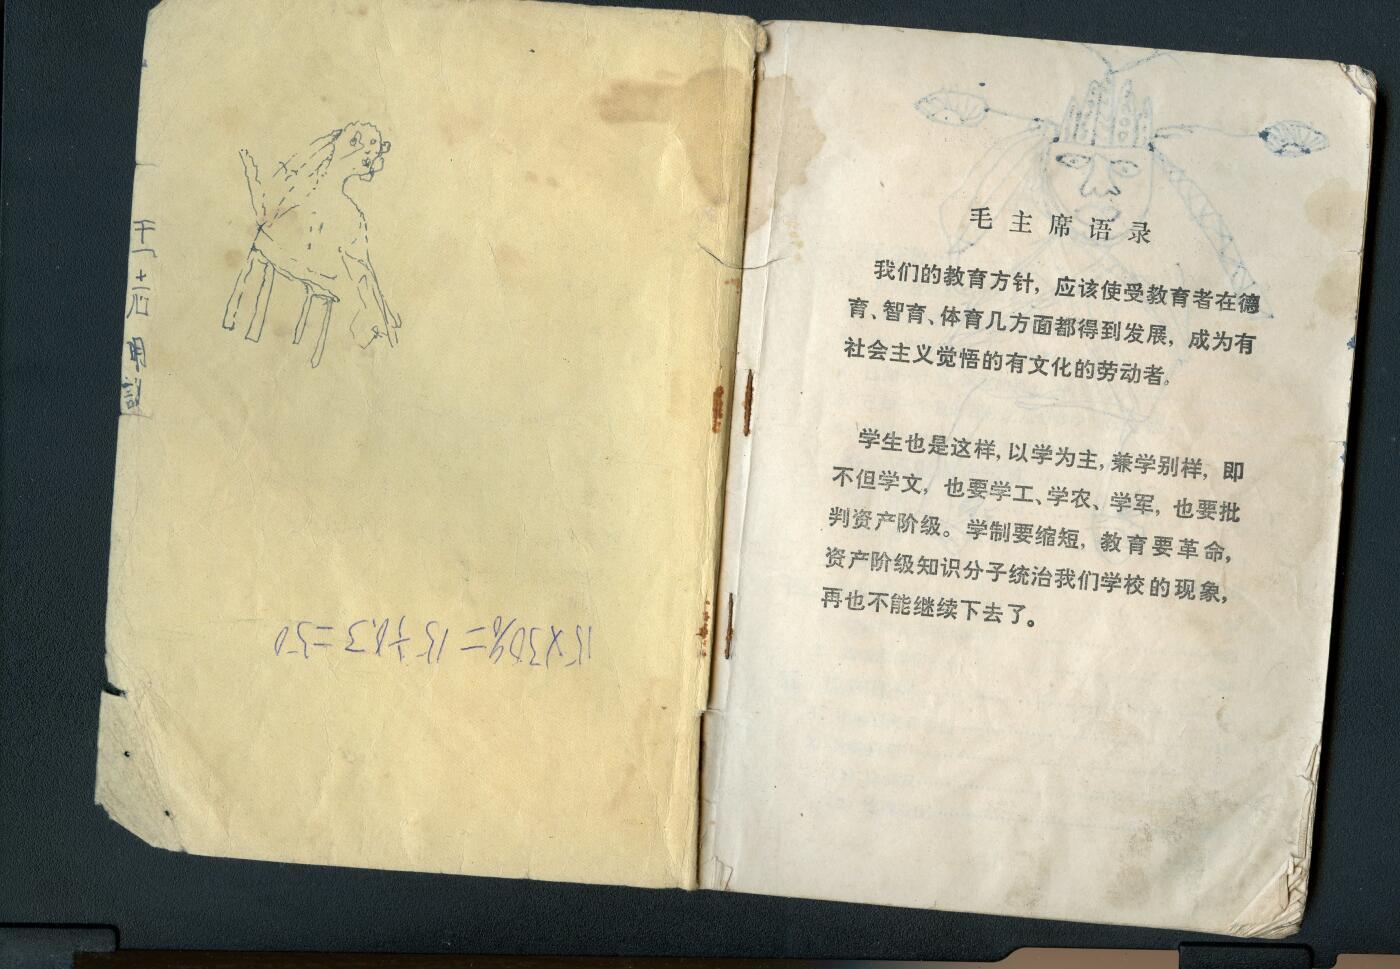 15×30%=15÷0.3=50
毛主席语录
我们的教育方针，应该使受教育者在德
育、智育、体育几方面都得到发展，成为有
社会主义觉悟的有文化的劳动者。
学生也是这样，以学为主，兼学别样，即
不但学文，也要学工、学农、学军，也要批
判资产阶级。学制要缩短，教育要革命，
资产阶级知识分子统治我们学校的现象，
再也不能继续下去了。